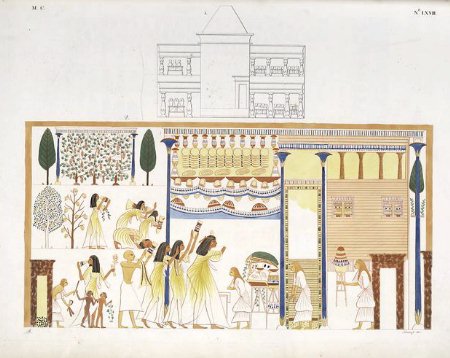 M. C.
Nº. LXVII
1.
2.